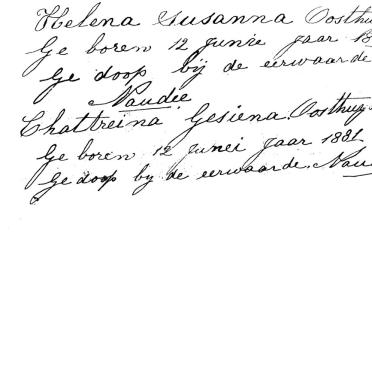 Helena Susanna Oosthu
Ge boren 12 Junie jaar
Ge doop bij de eerwaarde
Naudee
Chattreina Gesiena Oosthuyz
Ge boren 12 Junei jaar 1881
Ge doop by de eerwaarde Nau